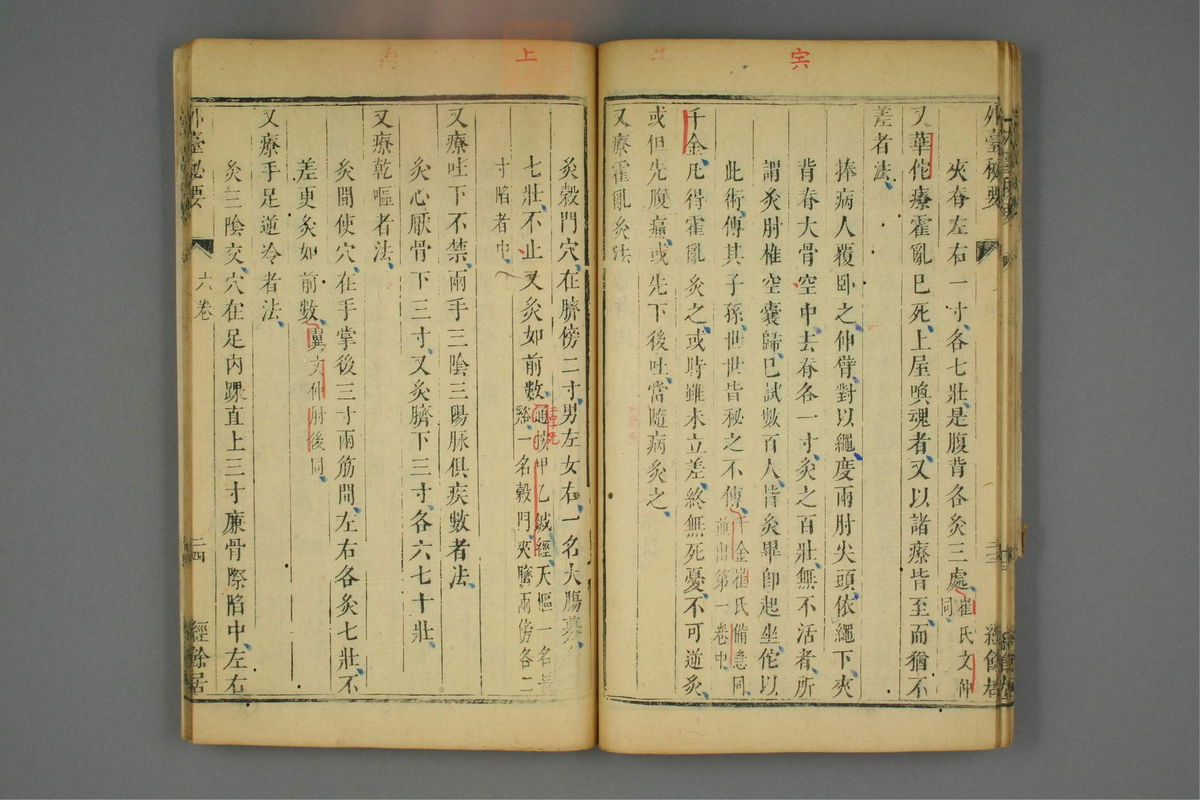 宍
外臺秘要
夾脊左右一寸各七壯是腹背各灸三處崔氏文仲同
又華佗療霍亂巳死上屋喚魂者又以諸療皆至而猶不
差者法
捧病人覆臥之伸臂對以繩度兩肘尖頭依繩下夾
背脊大骨空中去脊各一寸灸之百壯無不活者所
謂灸肘椎空囊歸巳試數百人皆灸畢卽起坐佗以
此術傳其子孫世世皆秘之不傳千金崔氏備急同
並出第一卷中
千金凡得霍亂灸之或時雖未立差終無死憂不可逆灸
或但先腹痛或先下後吐當隨病灸之
又療霍亂灸法
上
灸穀門穴在臍傍二寸男左女右一名大腸募
七壯不止又灸如前數通按甲乙鍼經天樞一名長
谿一名穀門夾臍兩傍各二
寸陷者中
又療吐下不禁兩手三陰三陽脉俱疾數者法
灸心厭骨下三寸又灸臍下三寸各六七十壯
又療乾嘔者法
灸間使穴在手掌後三寸兩筋間左右各灸七壯不
差更灸如前數翼文仲肘後同
又療手足逆冷者法
灸三陰交穴在足內踝直上三寸廉骨際陷中左右
外臺秘要
六卷
二四
經餘居